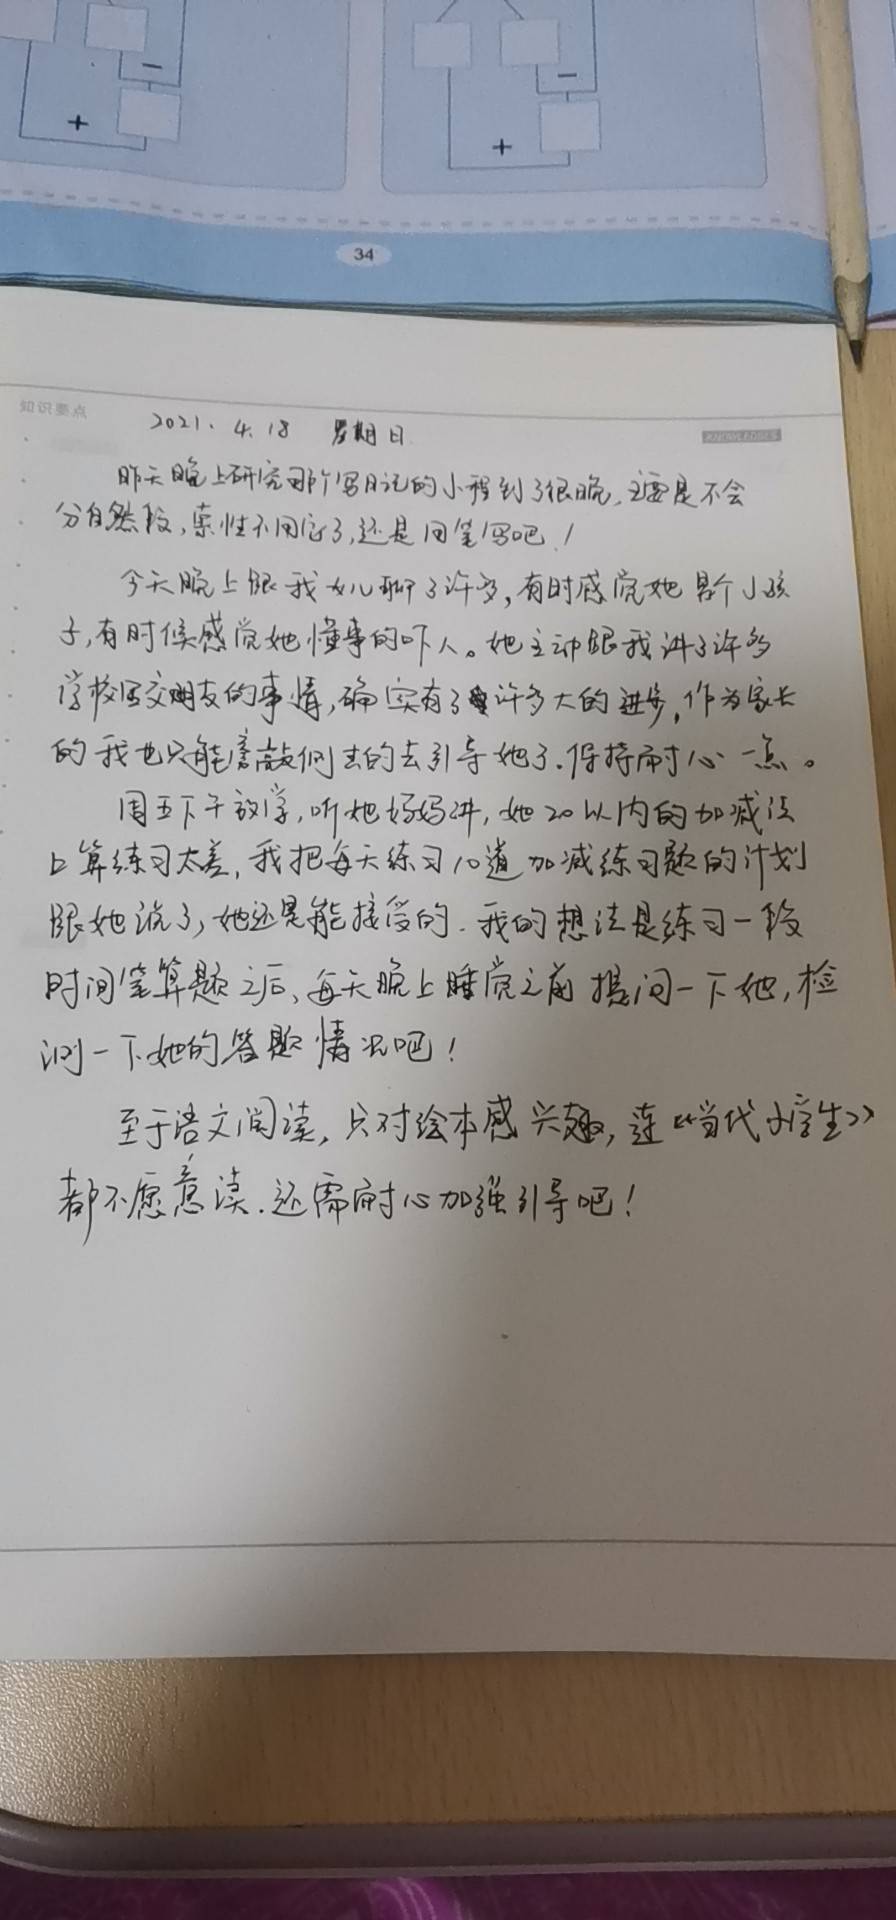 34
知识要点
KNOWLEDGES
2021. 4. 18 星期日
昨天晚上研究那个写日记的小程到了很晚,主要是不会
分自然段,索性不用它了,还是用笔写吧!
今天晚上跟我女儿聊了许多,有时感觉她是个小孩
子,有时候感觉她懂事的吓人。她主动跟我讲了许多
学校里交朋友的事情,确实有了许多大的进步,作为家长
的我也只能旁敲侧击的去引导她了.保持耐心一点。
周五下午放学,听她妈妈讲,她20以内的加减法
口算练习太差,我把每天练习10道加减练习题的计划
跟她说了,她还是能接受的.我的想法是练习一段
时间笔算题之后,每天晚上睡觉之前提问一下她,检
测一下她的答题情况吧!
至于语文阅读,只对绘本感兴趣,连《当代小学生》
都不愿意读.还需耐心加强引导吧!